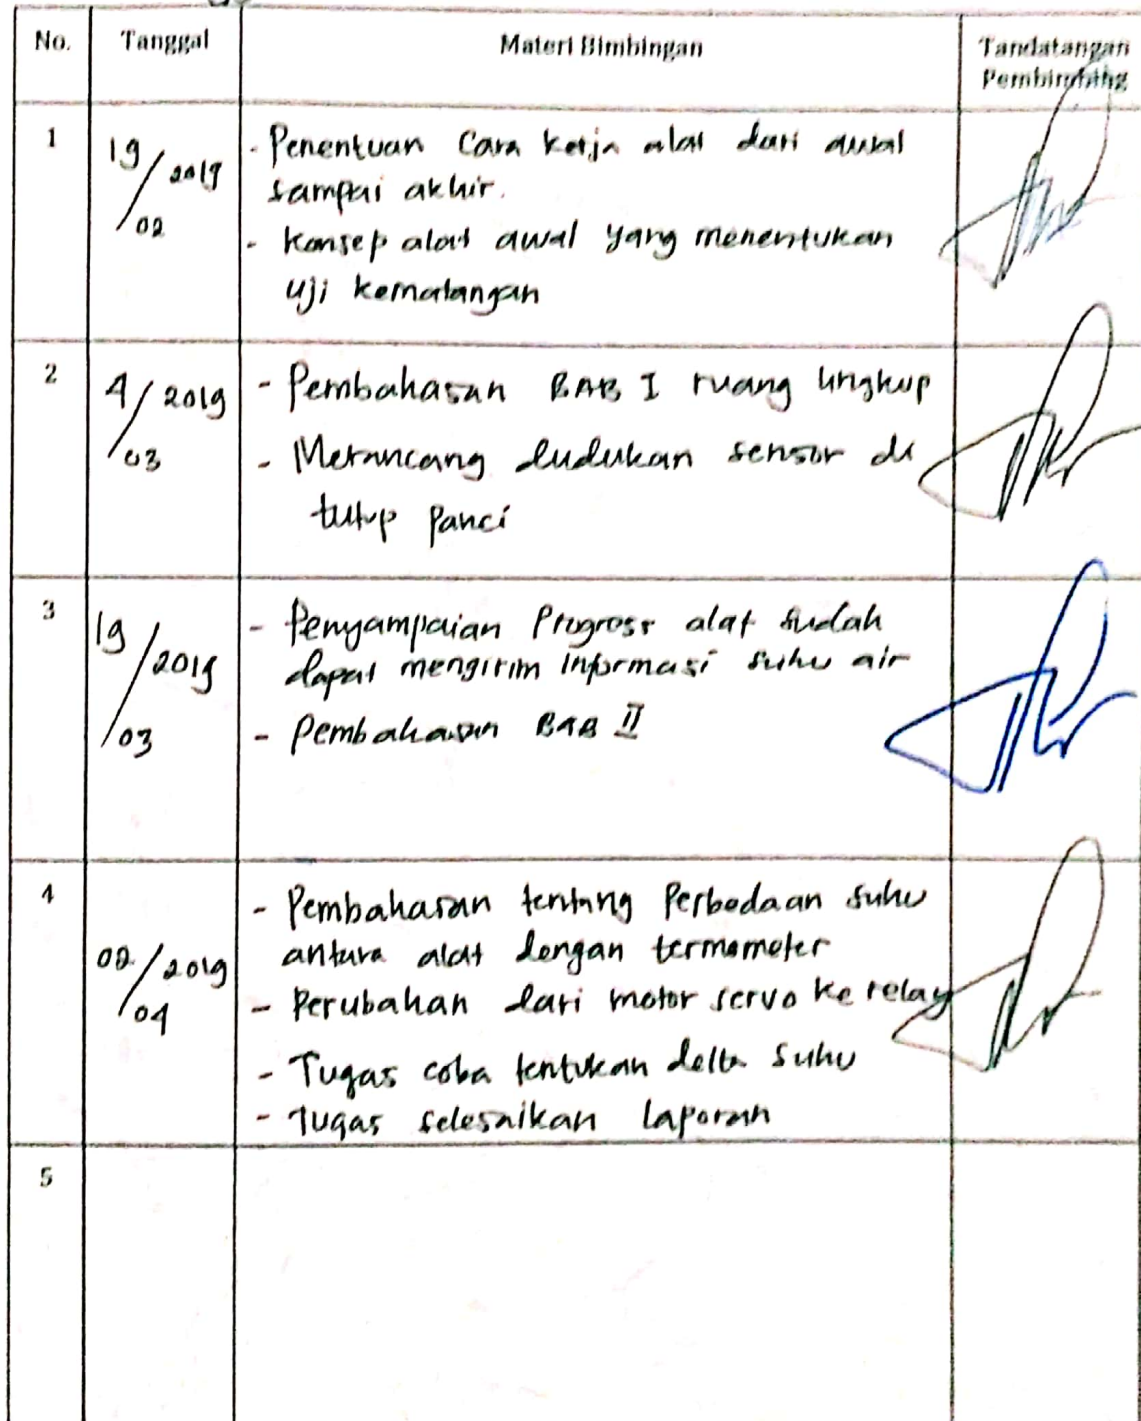 No. Tanggal Materi Bimbingan Tandatangan
Pembimbing
1 19/2019
02
- Penentuan Cara kerja alat dari awal
sampai akhir.
- Konsep alat awal yang menentukan
uji kematangan
2 4/2019
03
- Pembahasan BAB I ruang lingkup
- Merancang dudukan sensor di
tutup Panci
3 19/2019
03
- Penyampaian Progress alat sudah
dapat mengirim informasi suhu air
- Pembahasan BAB II
4 02/2019
04
- Pembahasan tentang Perbedaan suhu
antara alat dengan termometer
- Perubahan dari motor servo ke relay
- Tugas coba tentukan delta suhu
- Tugas selesaikan laporan
5